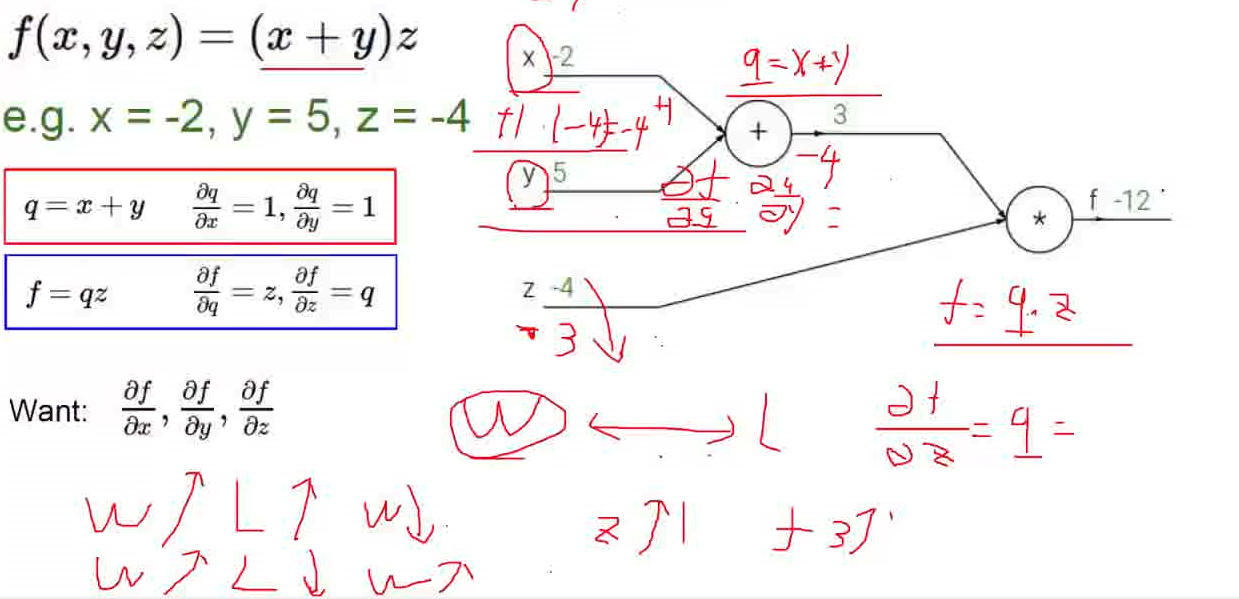 f(x, y, z) = (x + y)z
e.g. x = -2, y = 5, z = -4
q = x + y ∂q/∂x = 1, ∂q/∂y = 1
f = qz ∂f/∂q = z, ∂f/∂z = q
Want: ∂f/∂x, ∂f/∂y, ∂f/∂z
x -2
q=x+y
+
3
+1 · (-4)=-4
+1
-4
y 5
∂f/∂q
∂q/∂y =
*
f -12
z -4
-3
f = q · z
W ↔ L
∂f/∂z = q =
W↗ L↑ W↓
W↗ L↓ W↗
z↑1 f 3↑